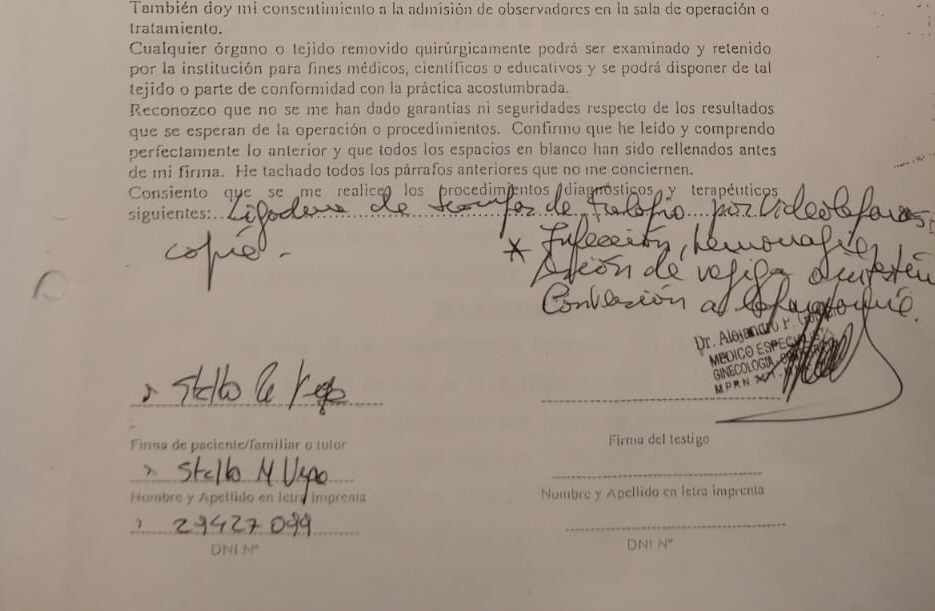 También doy mi consentimiento a la admisión de observadores en la sala de operación o
tratamiento.
Cualquier órgano o tejido removido quirúrgicamente podrá ser examinado y retenido
por la institución para fines médicos, científicos o educativos y se podrá disponer de tal
tejido o parte de conformidad con la práctica acostumbrada.
Reconozco que no se me han dado garantías ni seguridades respecto de los resultados
que se esperan de la operación o procedimientos. Confirmo que he leído y comprendo
perfectamente lo anterior y que todos los espacios en blanco han sido rellenados antes
de mi firma. He tachado todos los párrafos anteriores que no me conciernen.
Consiento que se me realicen los procedimientos diagnósticos y terapéuticos
siguientes: Ligadura de trompas de Falopio por videolaparos
copia -
* Infección, hemorragia,
de vejiga o
Conversión a
Dr. Alejandro P.
MEDICO ESPECIALISTA
GINECOLOGIA
M.P.R.N
Firma de paciente/familiar o tutor
Firma del testigo
Nombre y Apellido en letra imprenta
Nombre y Apellido en letra imprenta
29427099
DNI Nº
DNI Nº